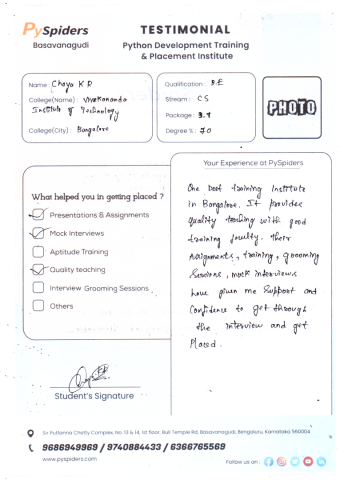 PySpiders
Basavanagudi
TESTIMONIAL
Python Development Training
& Placement Institute
Name : Chaya K R
College(Name) : Vivekananda
Institute of Technology
College(City) : Bangalore
Qualification : B.E
Stream : CS
Package : 3.1
Degree % : 70
PHOTO
What helped you in getting placed ?
Presentations & Assignments
Mock Interviews
Aptitude Training
Quality teaching
Interview Grooming Sessions
Others
Your Experience at PySpiders
One best training Institute
in Bangalore. It provides
quality teaching with good
training faculty. their
Assignments, training, grooming
Sessions, mock interviews
have given me support and
Confidence to get through
the interview and get
Placed.
Student's Signature
Sir Puttanna Chetty Complex, No. 13 & 14, 1st floor, Bull Temple Rd, Basavanagudi, Bengaluru, Karnataka 560004
9686949969 / 9740884433 / 6366765569
www.pyspiders.com
Follow us on :